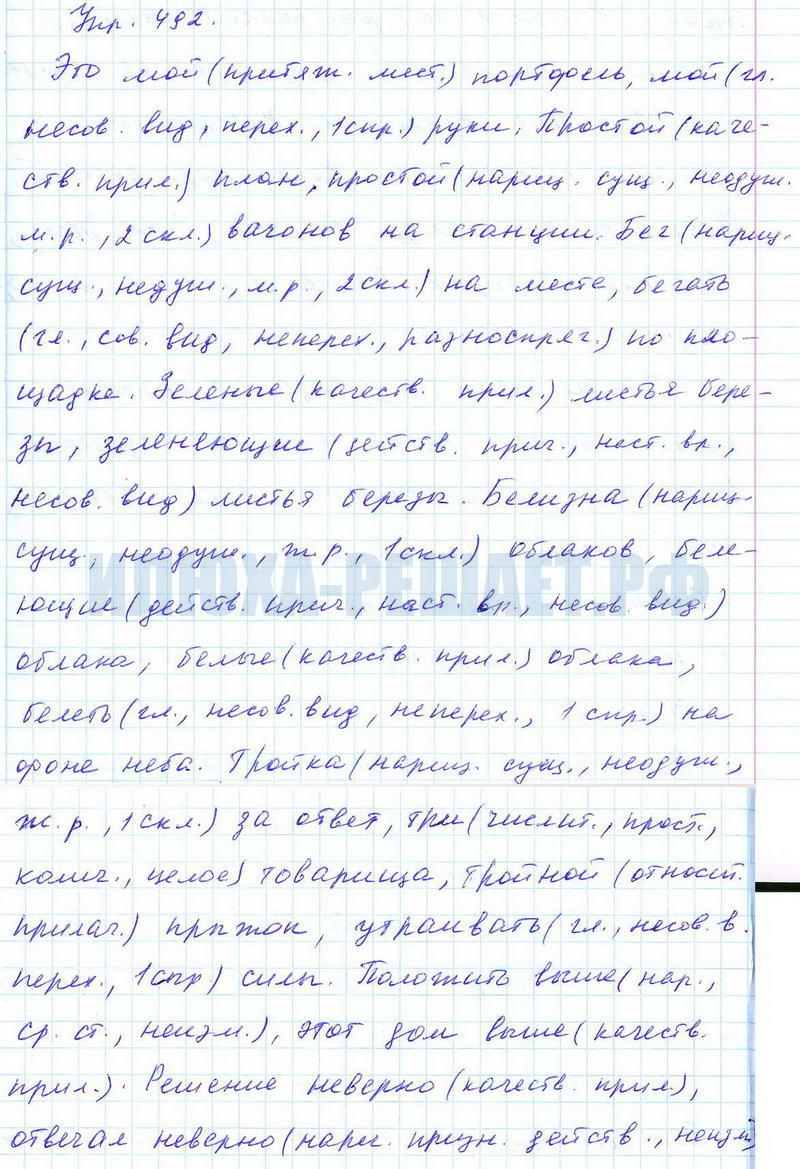 Упр. 492.
Это мой (притяж. мест.) портфель, мой (гл.
несов. вид, перех., 1 спр.) руки. Простой (каче-
ств. прил.) план, простой (нариц. сущ., неодуш.
м.р., 2 скл.) вагонов на станции. Бег (нариц.
сущ., недуш., м.р., 2 скл.) на месте, бегать
(гл., сов. вид, неперех., разноспряг.) по пло-
щадке. Зеленые (качеств. прил.) листья бере-
зы, зеленеющие (действ. прич., наст. вр.,
несов. вид) листья березы. Белизна (нариц.
сущ., неодуш., ж.р., 1 скл.) облаков, беле-
ИЛЮХА-РЕШАЕТ.РФ
ющие (действ. прич., наст. вр., несов. вид.)
облака, белые (качеств. прил.) облака,
белеть (гл., несов. вид, неперех., 1 спр.) на
фоне неба. Тройка (нариц. сущ., неодуш.,
ж.р., 1 скл.) за ответ, три (числит., прост.,
колич., целое) товарища, тройной (относит.
прилаг.) прыжок, утраивать (гл., несов. в.
перех., 1 спр) силы. Положить выше (нар.,
ср. ст., неизм.), этот дом выше (качеств.
прил.). Решение неверно (качеств. прил),
отвечал неверно (нареч. призн. действ., неизм